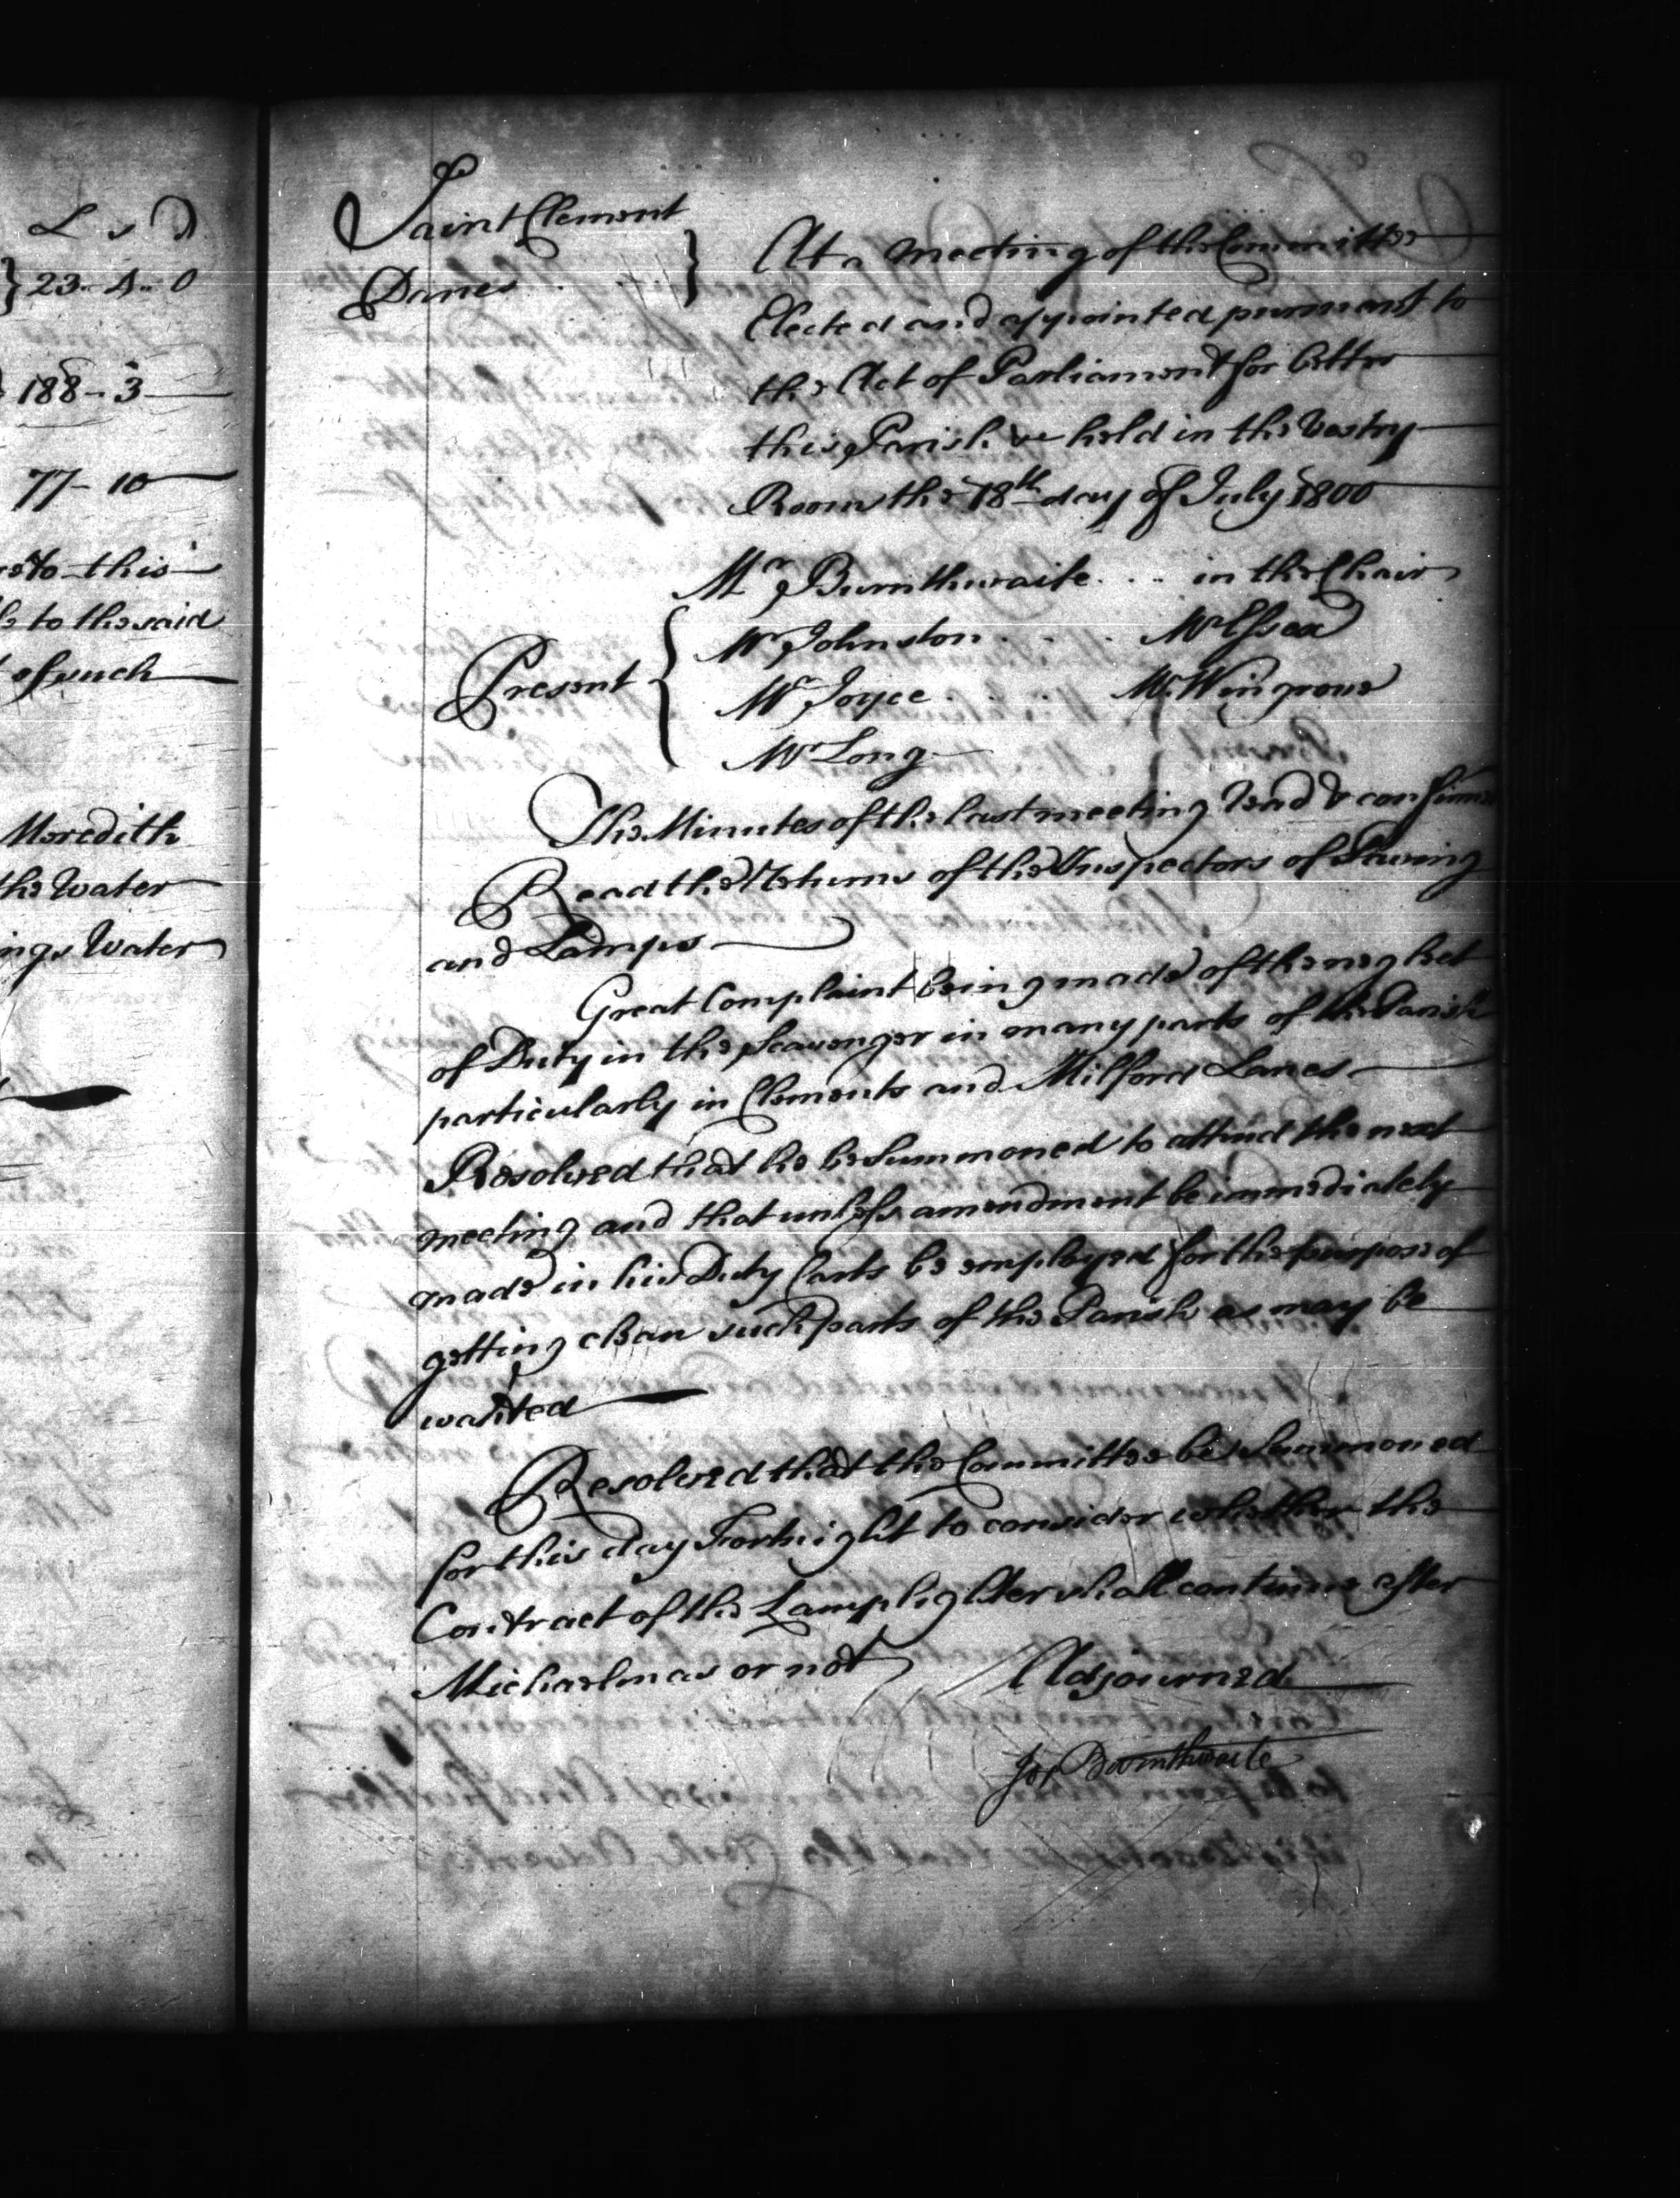 L s D
23 .. 4 .. 0
188 - 3
77 - 10
to this
to the said
of such
Meredith
the Water
ings Water
Saint Clement
Danes
At a Meeting of the Committee
Elected and appointed pursuant to
the Act of Parliament for better
this Parish &c held in the Vestry
Room the 18th day of July 1800
Mr Burnthwaite .... in the Chair
Present
Mr Johnston . . . Mr Essex
Mr Joyce . . . Mr Wingrove
Mr Long
The Minutes of the last meeting Read & confirmed
Read the Returns of the Inspectors of Paving
and Lamps
Great Complaint being made of the neglect
of Duty in the Scavenger in many parts of the Parish
particularly in Clements and Milford Lanes
Resolved that he be Summoned to attend the next
meeting and that unless amendment be immediately
made in his Duty Carts be employed for the purpose of
getting clean such parts of the Parish as may be
wanted
Resolved that the Committee be Summoned
for this day Fortnight to consider whether the
Contract of the Lamplighter shall continue after
Michaelmas or not Adjourned
Jos Burnthwaite